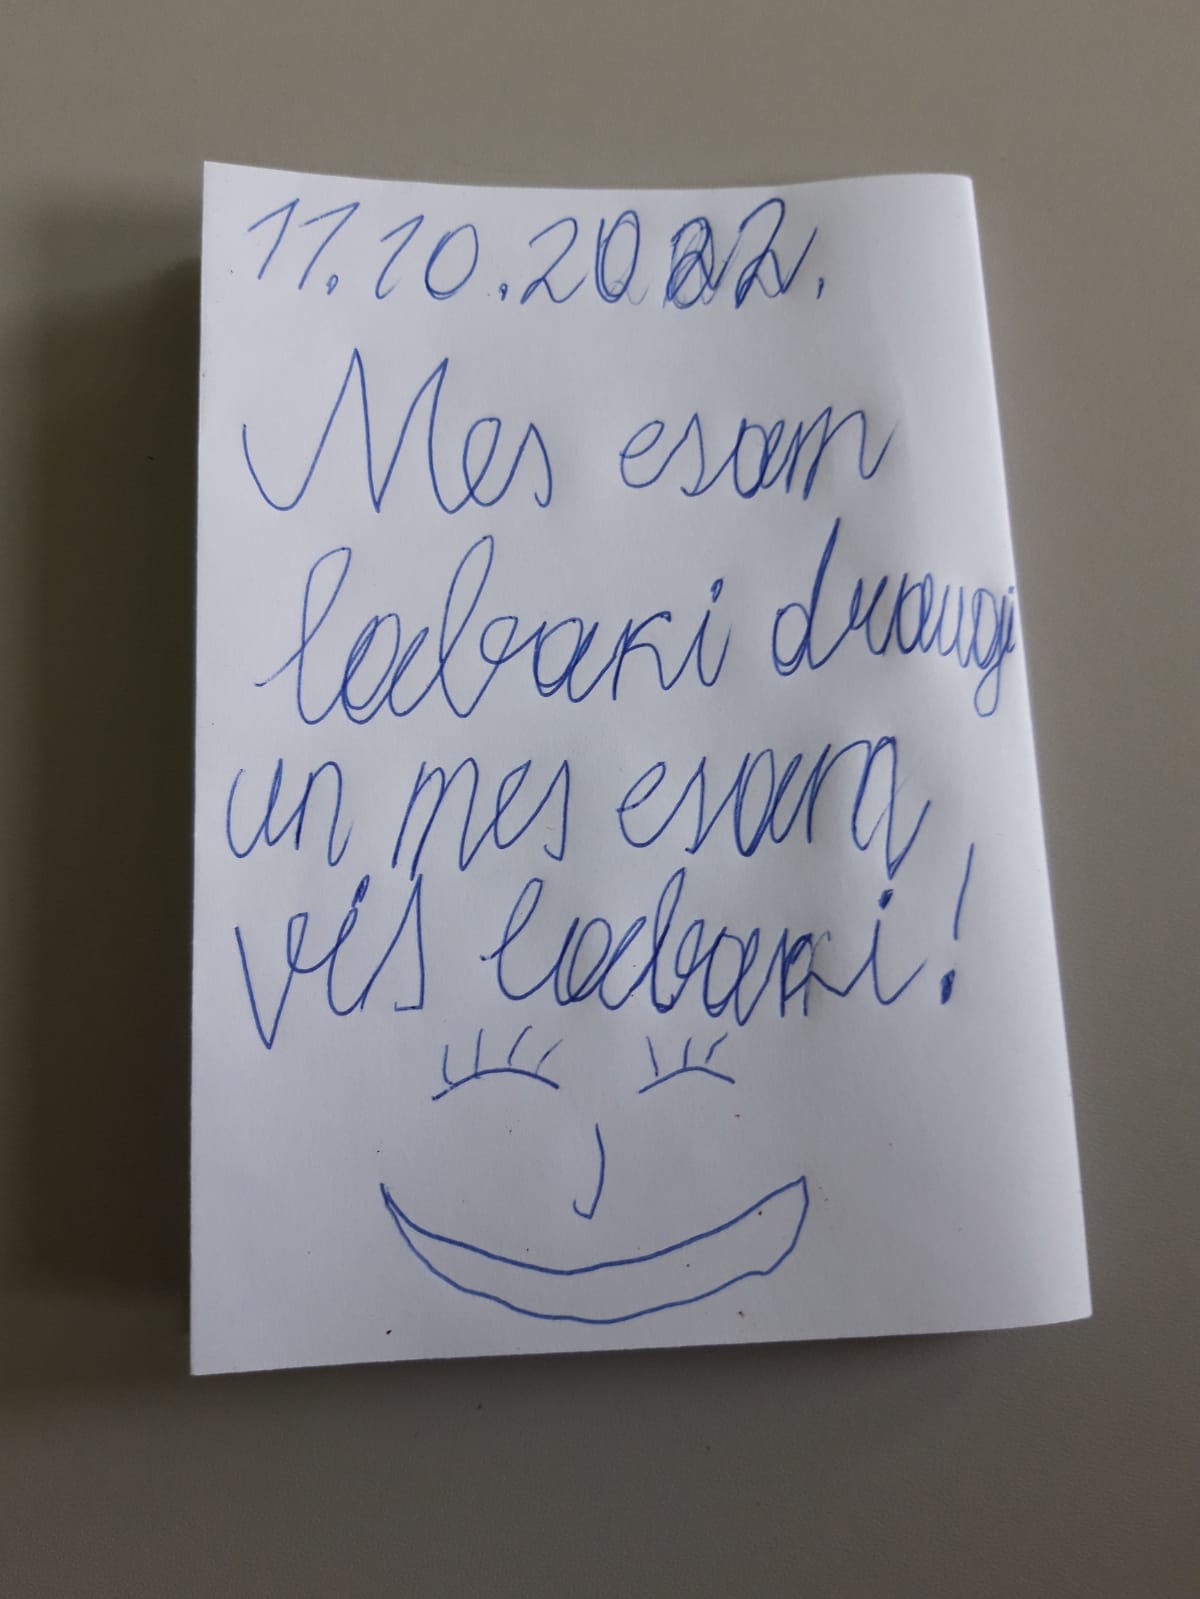 11.10.2022.
Mes esam
labaki draugi
un mes esam
vis labaki!